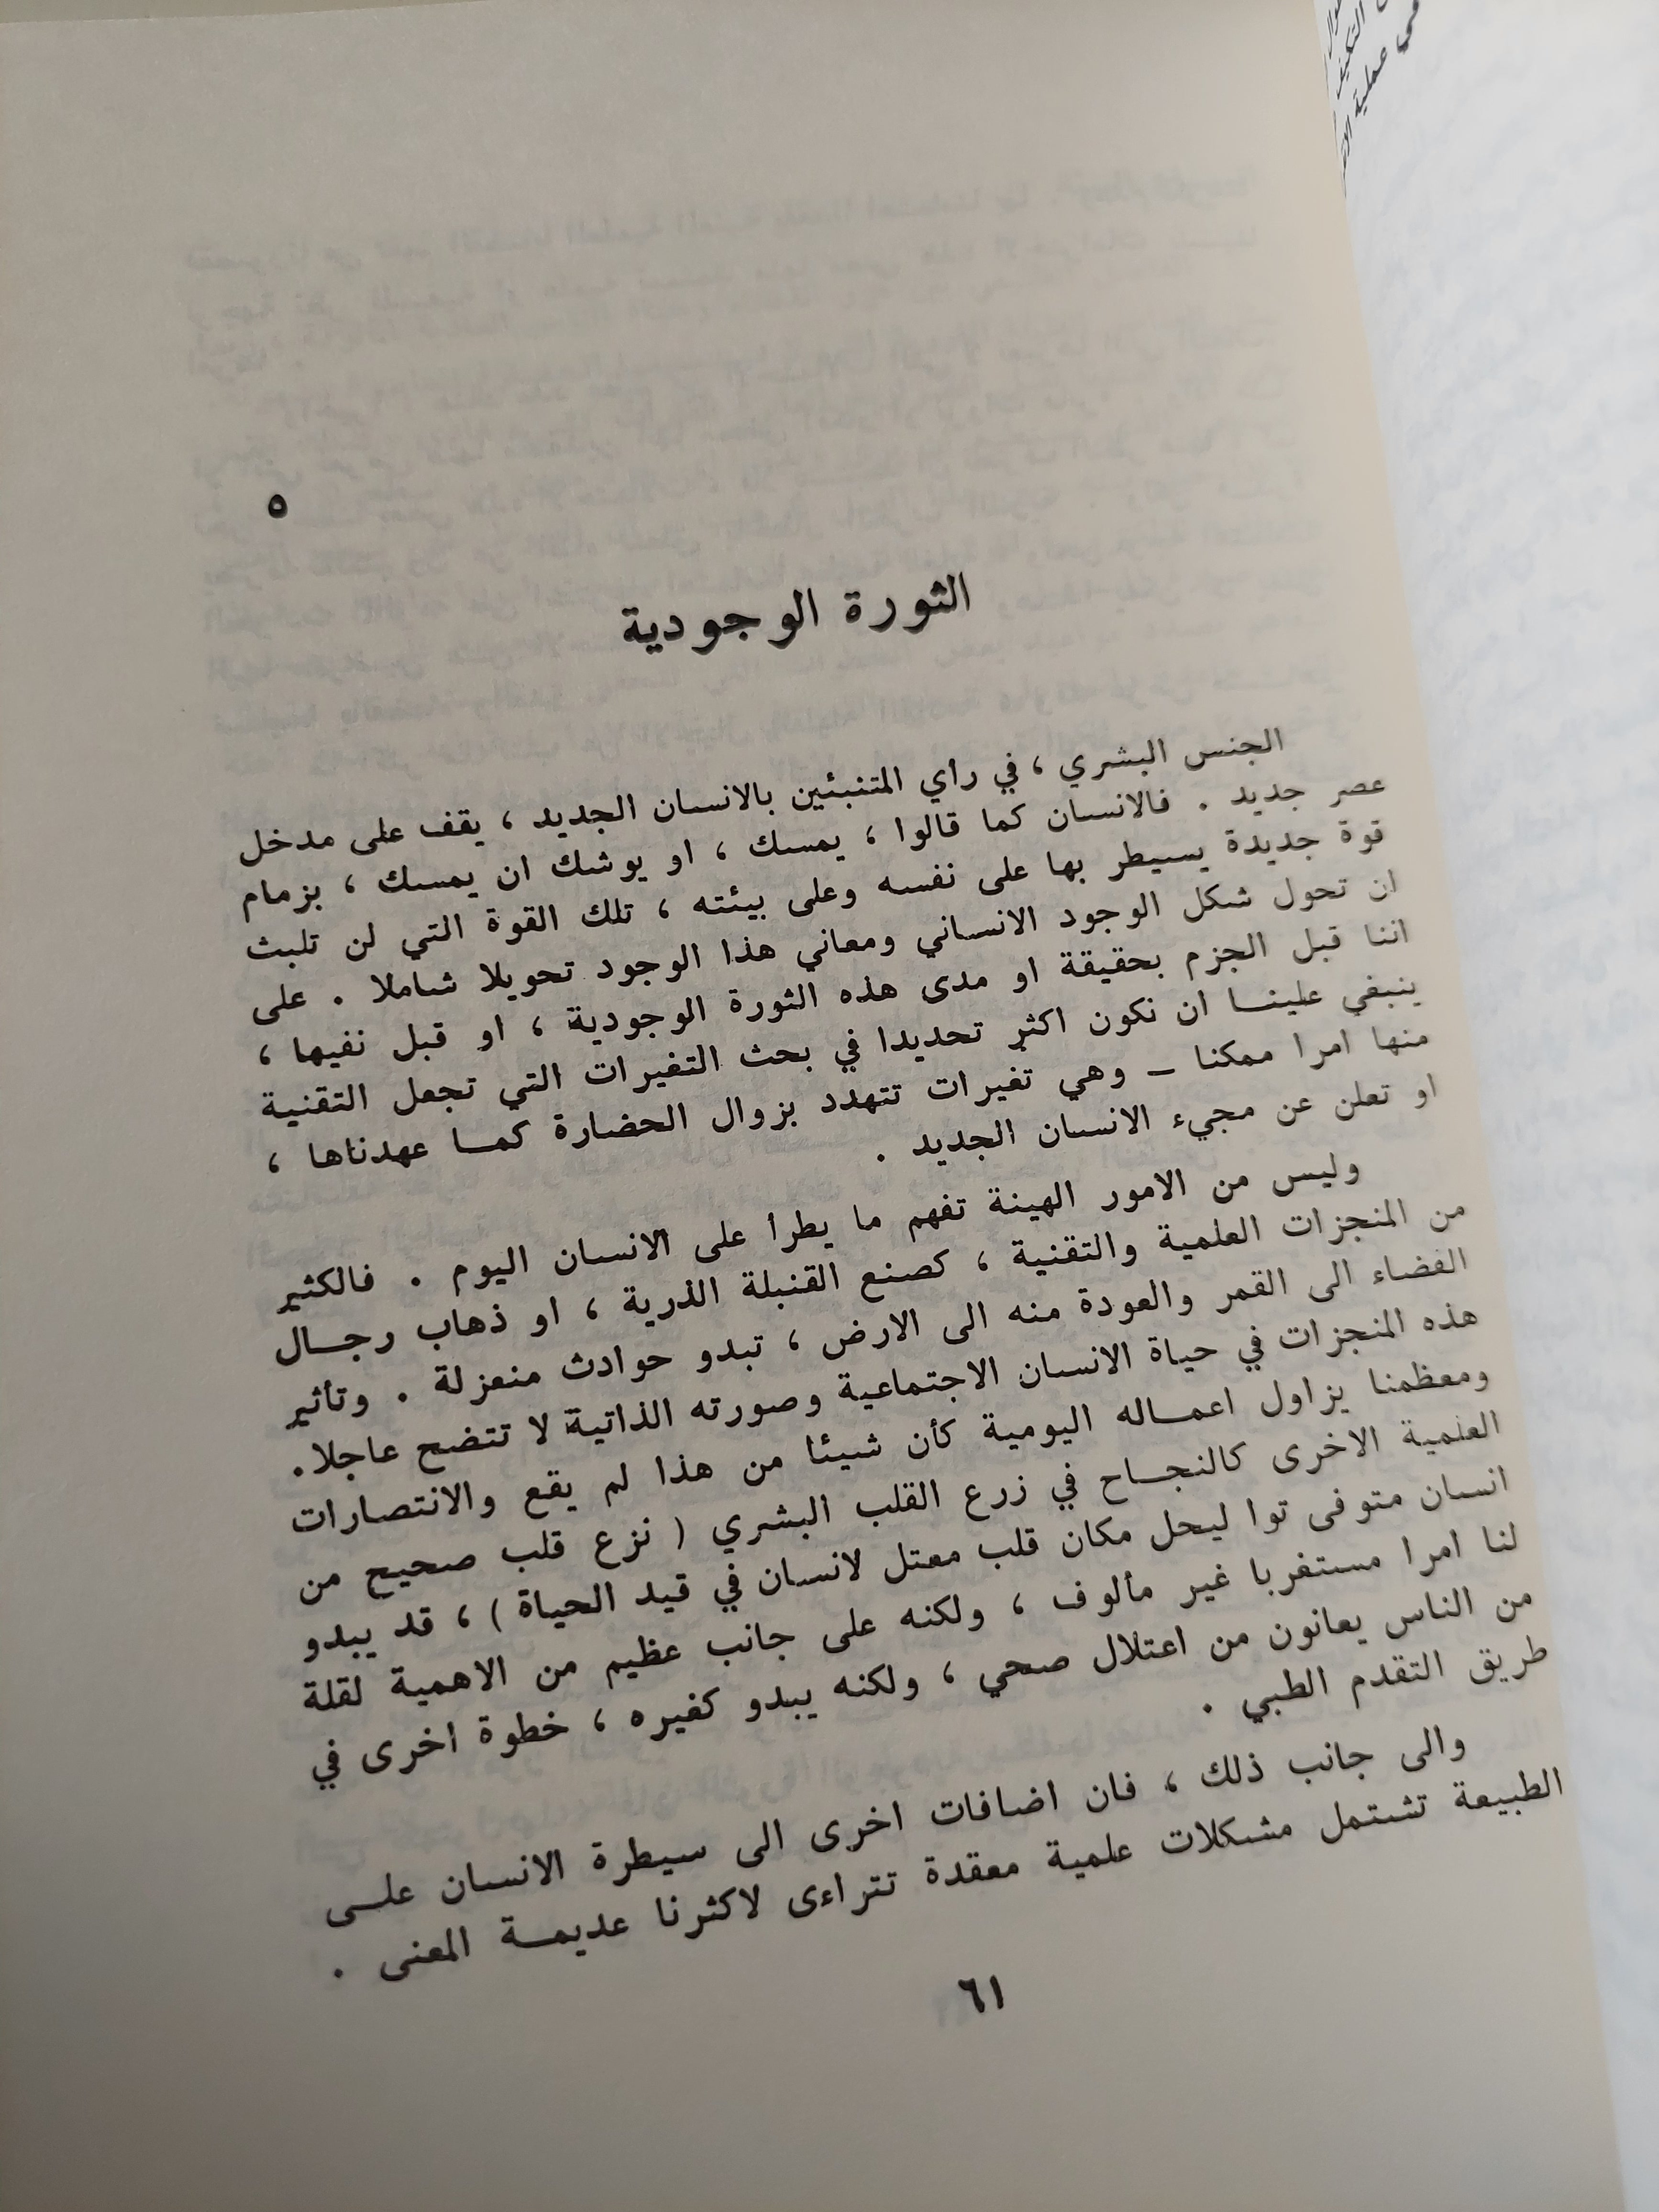 ٥
الثورة الوجودية
الجنس البشري ، في رأي المتنبئين بالانسان الجديد ، يقف على مدخل
عصر جديد . فالانسان كما قالوا ، يمسك ، او يوشك ان يمسك ، بزمام
قوة جديدة يسيطر بها على نفسه وعلى بيئته ، تلك القوة التي لن تلبث
ان تحول شكل الوجود الانساني ومعاني هذا الوجود تحويلا شاملا . على
اننا قبل الجزم بحقيقة او مدى هذه الثورة الوجودية ، او قبل نفيها ،
ينبغي علينـــا ان نكون اكثر تحديدا في بحث التغيرات التي تجعل التقنية
منها امرا ممكنا – وهي تغيرات تتهدد بزوال الحضارة كمـــا عهدناها ،
او تعلن عن مجيء الانسان الجديد .
وليس من الامور الهينة تفهم ما يطرأ على الانسان اليوم . فالكثير
من المنجزات العلمية والتقنية ، كصنع القنبلة الذرية ، او ذهاب رجـــال
الفضاء الى القمر والعودة منه الى الارض ، تبدو حوادث منعزلة . وتأثير
هذه المنجزات في حياة الانسان الاجتماعية وصورته الذاتية لا تتضح عاجلا.
ومعظمنا يزاول اعمـــاله اليومية كأن شيئا من هذا لم يقع والانتصارات
العلمية الاخرى كالنجـــاح في زرع القلب البشري ( نزع قلب صحيح من
انسان متوفى توا ليحل مكان قلب معتل لانسان في قيد الحياة ) ، قد يبدو
لنا امرا مستغربا غير مألوف ، ولكنه على جانب عظيم من الاهمية لقلة
من الناس يعانون من اعتلال صحي ، ولكنه يبدو كغيره ، خطوة اخرى في
طريق التقدم الطبي .
والى جانب ذلك ، فان اضافات اخرى الى سيطرة الانسان علـــى
الطبيعة تشتمل مشكلات علمية معقدة تتراءى لاكثرنا عديمـــة المعنى .
٦١